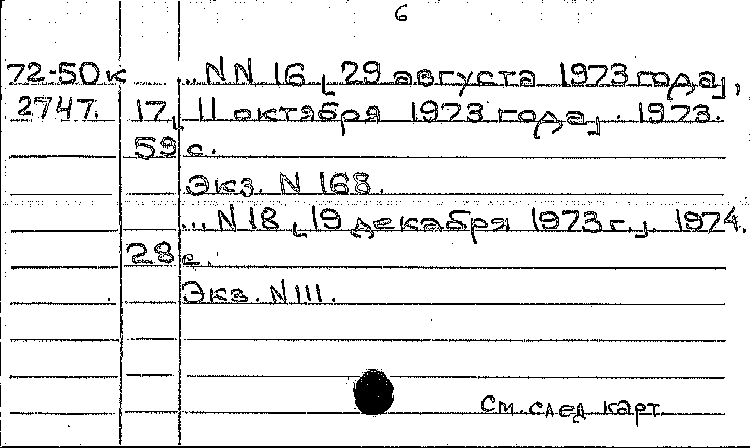 6
72-50к ...NN 16 [29 августа 1973 года],
2747. 17, [11 октября 1973 года]. 1973.
59 с.
Экз. N 168.
...N 18 [19 декабря 1973 г.]. 1974.
28 с.
Экз. N 111.
См. след. карт.